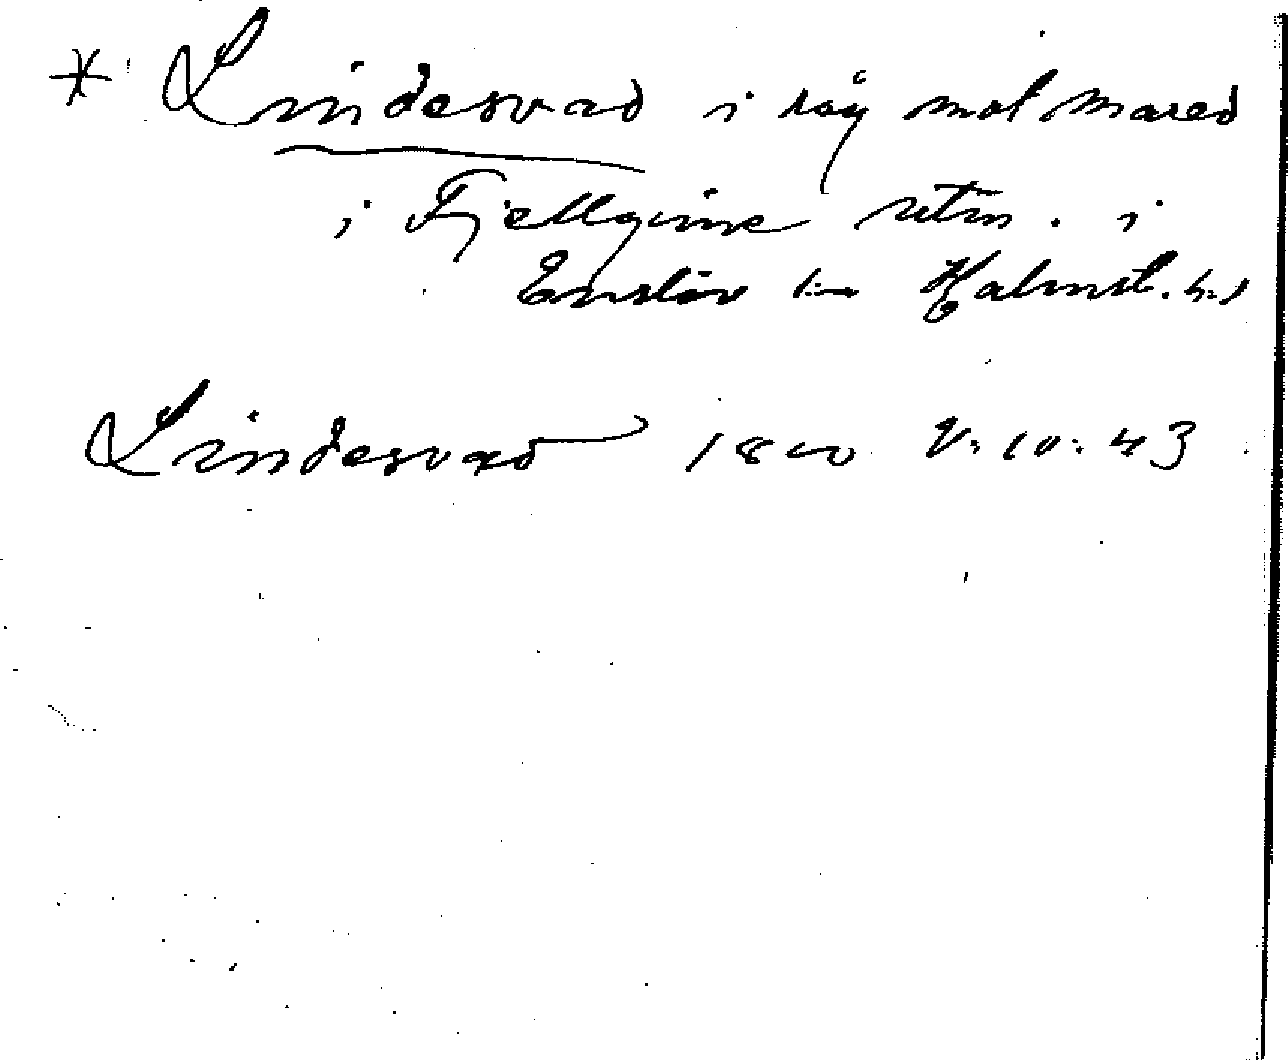 * Lindesvad i råg mot Mared
i Fjellgine retn. i
Enslöv sn Halmst. hd
Lindesvad 1800 V:10:43